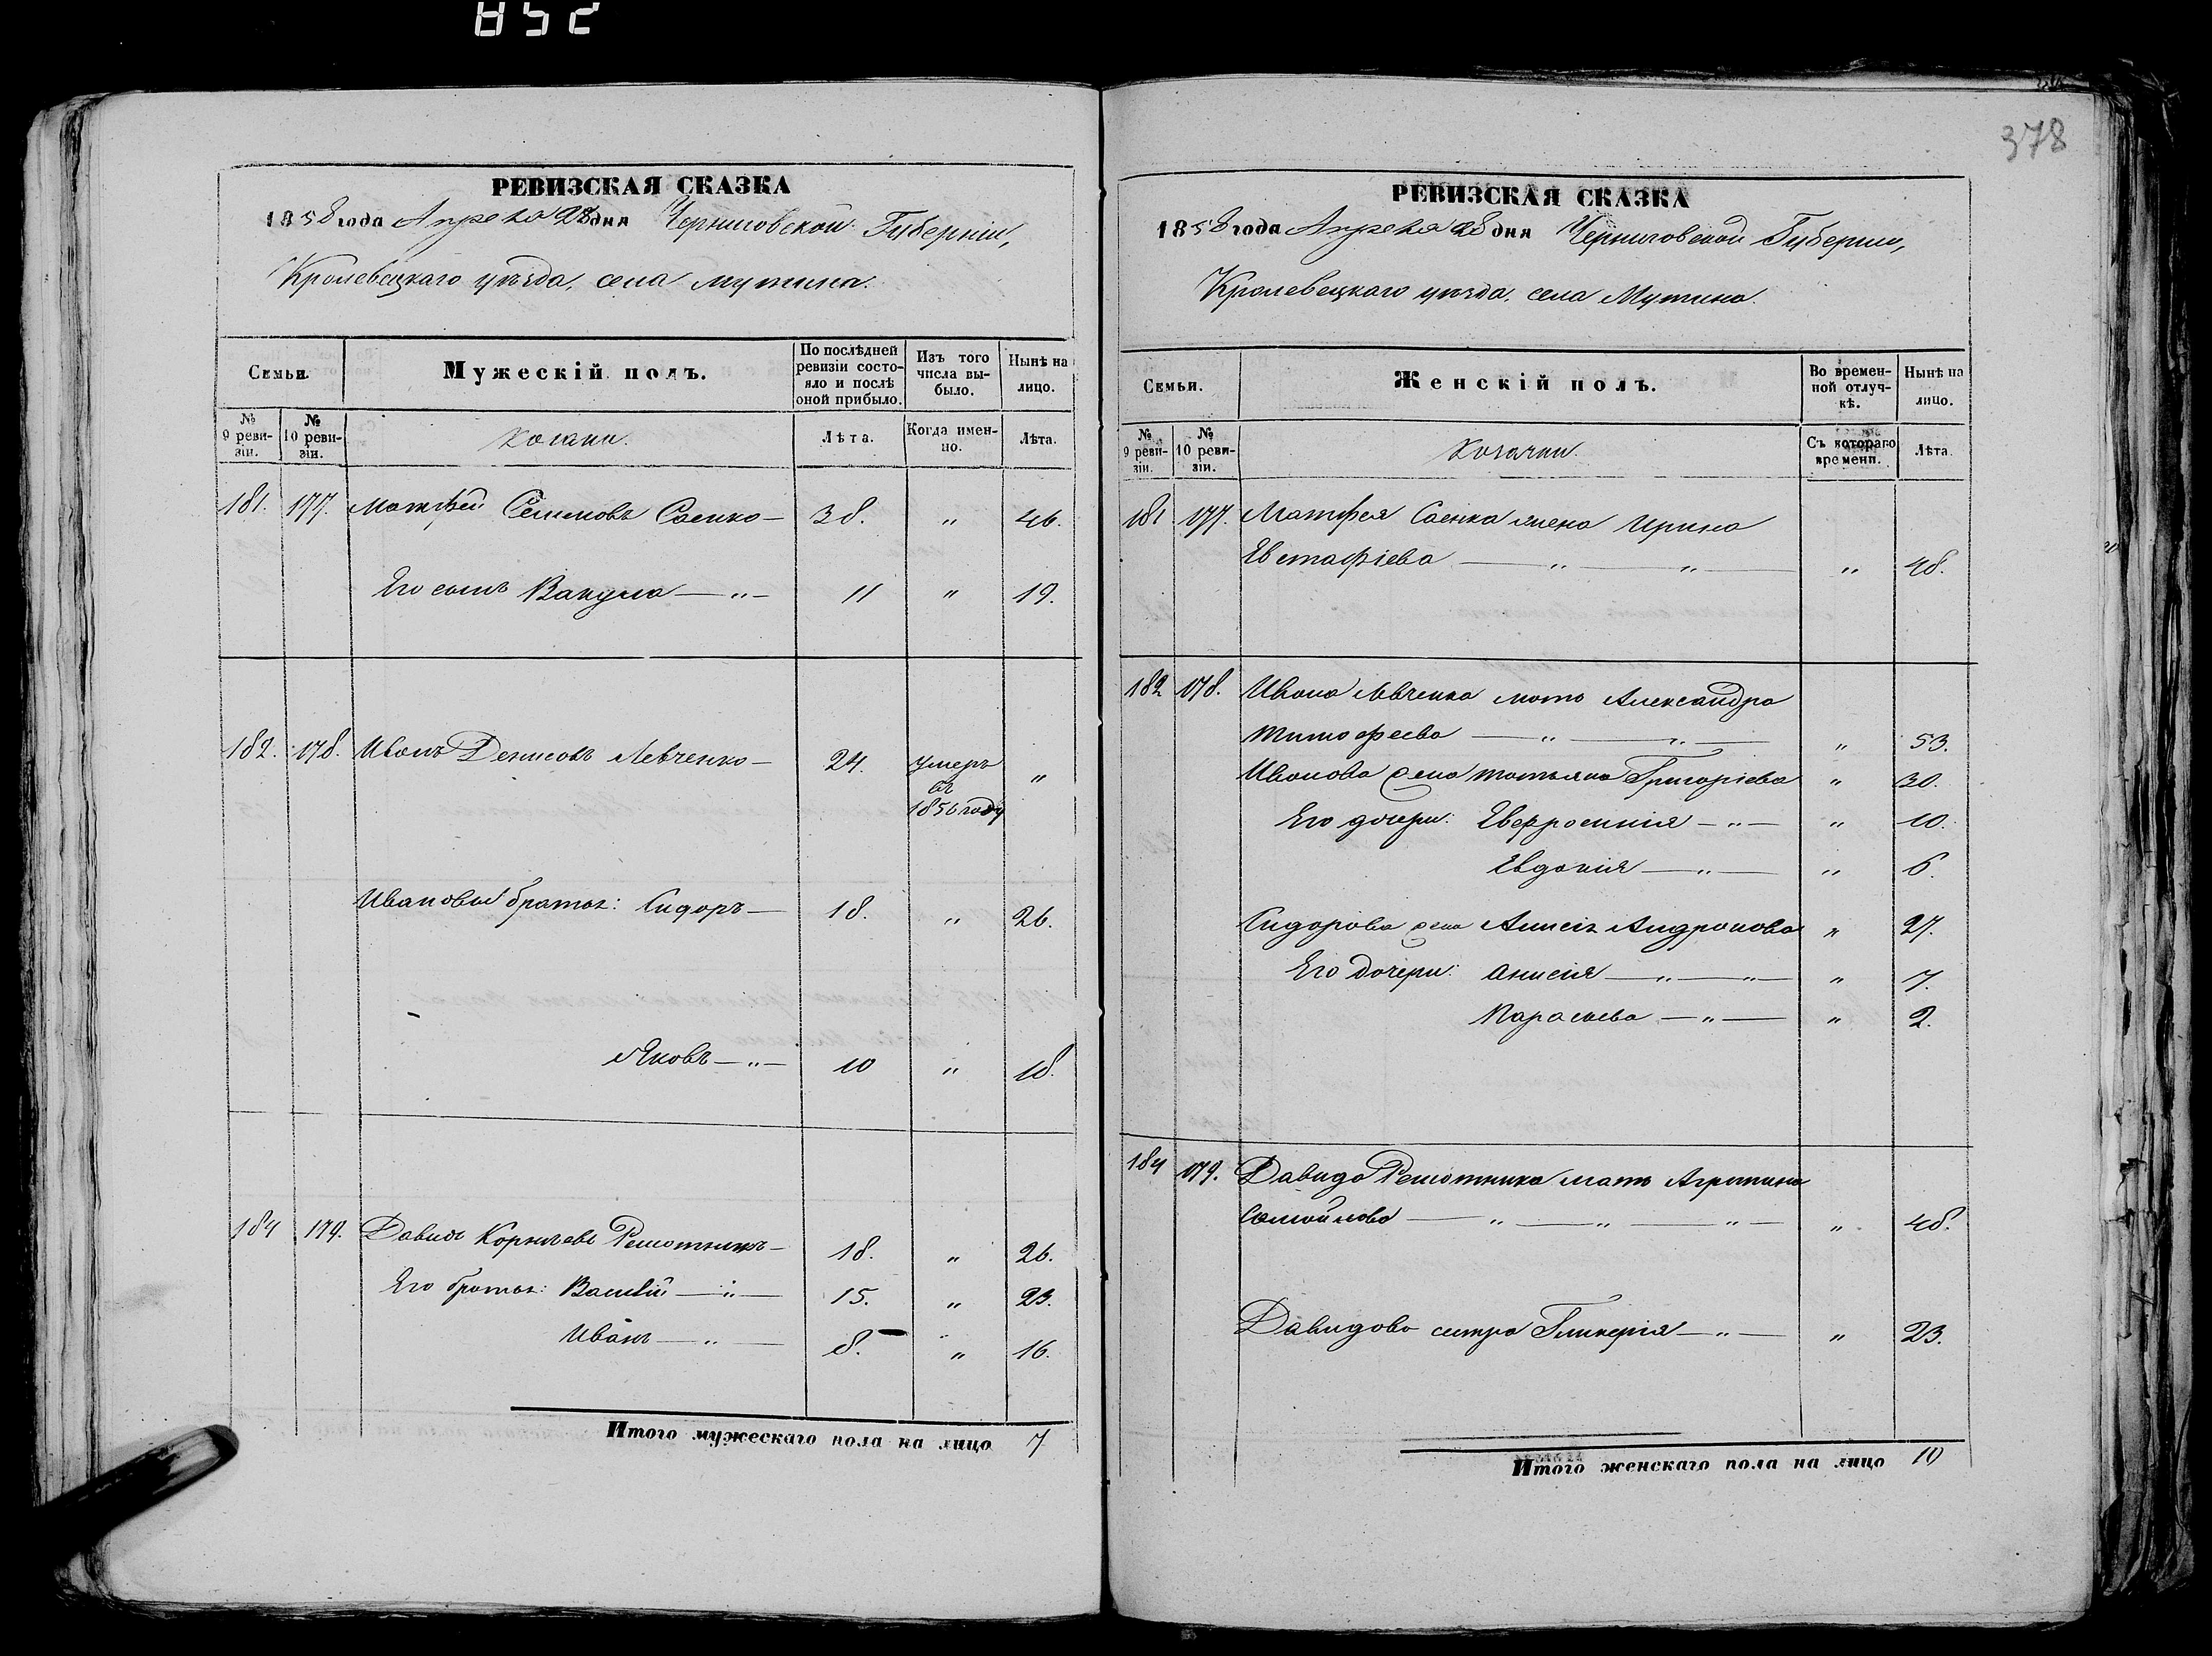 852
378
РЕВИЗСКАЯ СКАЗКА
1858 года Апреля 28 дня Черниговской Губерніи,
Кролевецкаго уѣзда, села Мутина.
Семьи.
Мужескій полъ.
По послѣдней ревизіи состояло и послѣ оной прибыло.
Изъ того числа выбыло.
Нынѣ на лицо.
№ 9 ревизіи.
№ 10 ревизіи.
Козаки.
Лѣта.
Когда именно.
Лѣта.
181. 177. Матфей Саенко — 38. " 46.
Его сынъ Вакула — " — 11 " 19.
182. 178. Иванъ Денисовъ Левченко — 24. умеръ въ 1856 году "
Ивановы братья: Сидоръ — 18. " 26.
Яковъ — " — 10 " 18.
184 179. Давидъ Корнѣевъ Решотникъ — 18. " 26.
Его братья: Василій — " — 15. " 23.
Иванъ — " — 8. " 16.
Итого мужескаго пола на лицо 7
РЕВИЗСКАЯ СКАЗКА
1858 года Апреля 28 дня Черниговской Губерніи,
Кролевецкаго уѣзда, села Мутина.
Семьи.
Женскій полъ.
Во временной отлучкѣ.
Нынѣ на лицо.
№ 9 ревизіи.
№ 10 ревизіи.
Козачки.
Съ котораго времени.
Лѣта.
181 177. Матфея Саенка жена Ирина
Евстафіева — " — " — " 48.
182 178. Ивана Левченка мать Александра
Тимофеева — " — " — " 53.
Иванова жена Татьяна Григоріева " 30.
Его дочери: Евфросинія — " — " 10.
Евдокія — " — " 6.
Сидорова жена Андронова " 27.
Его дочери: Анисія — " — " — " 7.
Парасковья — " — " 2.
184 179. Давида Решотника мать Агрипина
Самойлова — " — " — " — " 48.
Давидова сестра Гликерія — " — " 23.
Итого женскаго пола на лицо 10